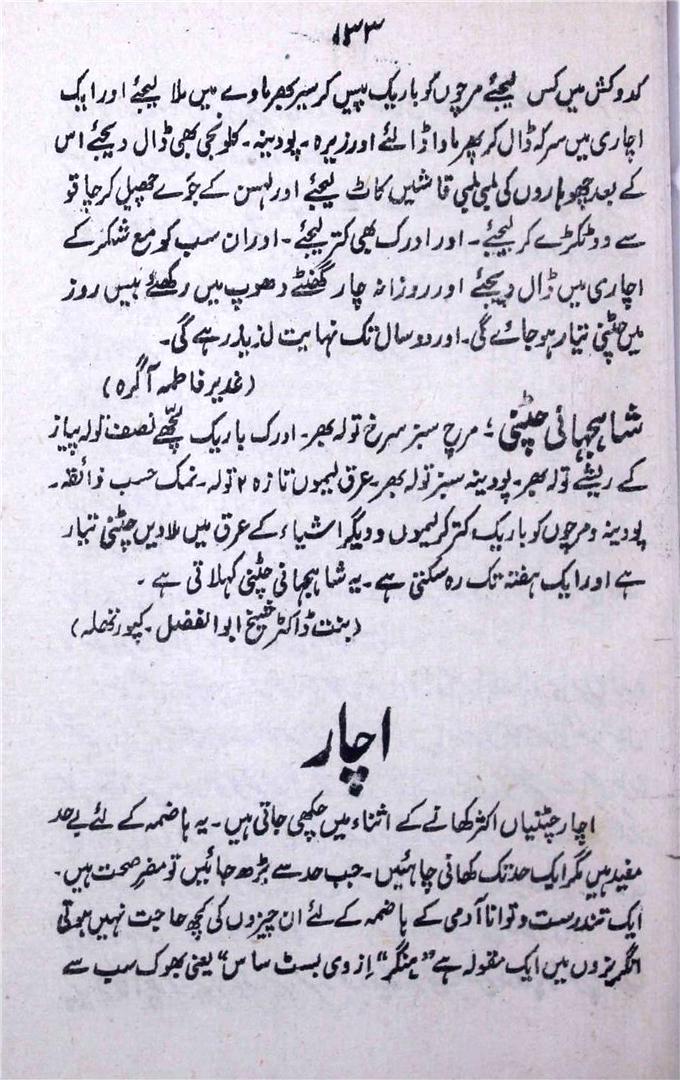 ۱۳۳
کدوکش میں کس لیجئے مرچوں کو باریک پیس کر سیر بھر ماوے میں ملا لیجئے اور ایک
اچاری میں سرکہ ڈال کر پھر ماوا ڈالئے اور زیرہ ۔ پودینہ ۔ کلونجی بھی ڈال دیجئے اس
کے بعد چھوہاروں کی لمبی لمبی قاشیں کاٹ لیجئے اور لہسن کے جَوے چھیل کر چاقو
سے دو ٹکڑے کر لیجئے ۔ اور ادرک بھی کتر لیجئے ۔ اور ان سب کو مع شکر کے
اچاری میں ڈال دیجئے اور روزانہ چار گھنٹے دھوپ میں رکھئے بیس روز
میں چٹنی تیار ہو جائے گی ۔ اور دو سال تک نہایت لذیذ رہے گی ۔
(غدیر فاطمہ آگرہ)
شاہجہانی چٹنی : مرچ سبز سرخ تولہ بھر ۔ ادرک باریک لچھے نصف تولہ پیاز
کے ریشے تولہ بھر ۔ پودینہ سبز تولہ بھر ۔ عرق لیموں تازہ ۲ تولہ ۔ نمک حسب ذائقہ ۔
پودینہ و مرچوں کو باریک کتر کر لیموں و دیگر اشیاء کے عرق میں ملا دیں چٹنی تیار
ہے اور ایک ہفتہ تک رہ سکتی ہے ۔ یہ شاہجہانی چٹنی کہلاتی ہے ۔
(بنت ڈاکٹر شیخ ابوالفضل ۔ کپورتھلہ)
اچار
اچار چٹنیاں اکثر کھانے کے اثناء میں چکھی جاتی ہیں ۔ یہ ہاضمہ کے لئے بے حد
مفید ہیں مگر ایک حد تک کھانی چاہئیں ۔ جب حد سے بڑھ جائیں تو مضر صحت ہیں ۔
ایک تندرست و توانا آدمی کے ہاضمہ کے لئے ان چیزوں کی کچھ حاجت نہیں ہوتی
انگریزوں میں ایک مقولہ ہے "ہنگر" اِز دی بسٹ ساس" یعنی بھوک سب سے